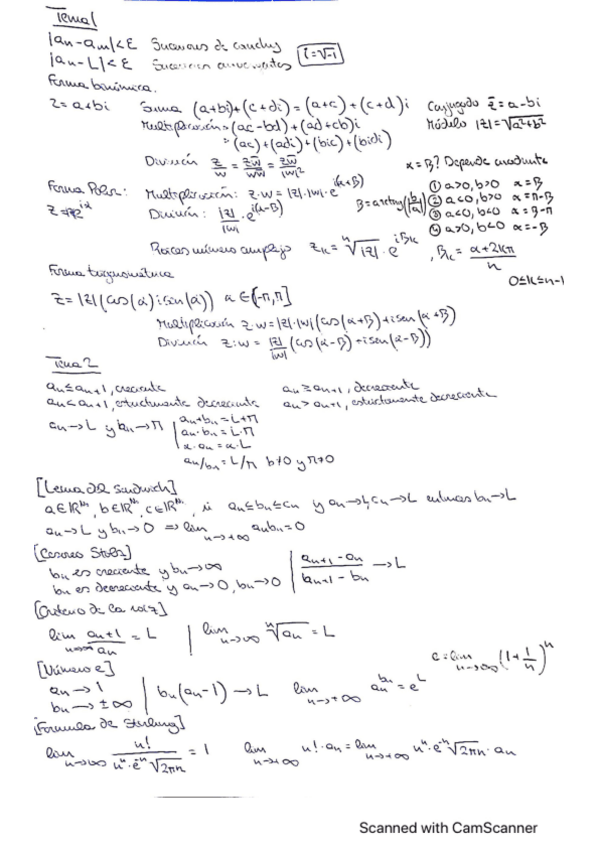 Tema 1
|an-am|<ε Sucesiones de cauchy
|an-L|<ε Sucesiones convergentes i=√-1
Forma binómica.
Z=a+bi Suma (a+bi)+(c+di)=(a+c)+(c+d)i Conjugado z̄=a-bi
Multiplicación=(ac-bd)+(ad+cb)i Módulo |z|=√a²+b²
=(ac)+(adi)+(bic)+(bidi)
División z/w = zw̄/ww̄ = zw̄/|w|² α=β? Depende cuadrante
Forma Polar: Multiplicación: z·w=|z|·|w|·e^i(α+β) ① a>0, b>0 α=β
División: |z|/|w| e^i(α-β) β=arctg(|b/a|) ② a<0, b>0 α=π-β
③ a<0, b<0 α=β-π
④ a>0, b<0 α=-β
Raíces número complejo Zk=ⁿ√|z|·e^iβk, βk=(α+2kπ)/n
0≤k≤n-1
Forma trigonométrica
Z=|z|(cos(α)isen(α)) α∈(-π,π]
Multiplicación z·w=|z|·|w|(cos(α+β)+isen(α+β))
División z:w=|z|/|w|(cos(α-β)+isen(α-β))
Tema 2
an≤an+1, creciente an≥an+1, decreciente
an<an+1, estrictamente decreciente an>an+1, estrictamente decreciente
an→L y bn→M an+bn=L+M
an·bn=L·M
α·an=α·L
an/bn=L/M b≠0 y M≠0
[Lema del Sandwich]
a∈ℝ^ℕ, b∈ℝ^ℕ, c∈ℝ^ℕ, si an≤bn≤cn y an→L, cn→L entonces bn→L
an→L y bn→0 ⇒ lim n→+∞ anbn=0
[Cesareo Stolz]
bn es creciente y bn→∞ (an+1-an)/(bn+1-bn)→L
bn es decreciente y an→0, bn→0
[Criterio de la raíz]
lim n→∞ an+1/an=L lim n→∞ ⁿ√an=L
e=lim n→∞ (1+1/n)^n
[Número e]
an→1 bn(an-1)→L lim n→+∞ an^bn=e^L
bn→±∞
[Formula de Stirling]
lim n→∞ n!/(n^n·e^-n√2πn)=1 lim n→+∞ n!·an=lim n→+∞ n^n·e^-n√2πn·an
Scanned with CamScanner